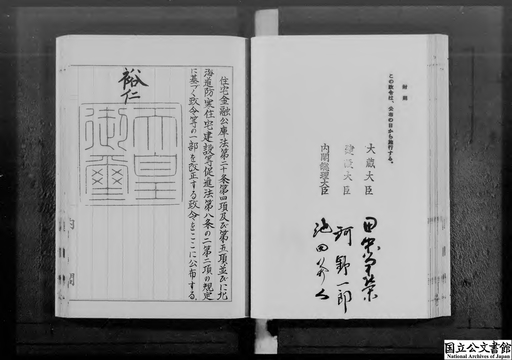 附則
この政令は、公布の日から施行する。
大蔵大臣
建設大臣
内閣総理大臣
田中角榮
河野一郎
池田勇人
住宅金融公庫法第二十条第四項及び第五項並びに北
海道防寒住宅建設等促進法第八条の二第二項の規定
に基づく政令等の一部を改正する政令をここに公布する。
裕仁
天皇
御璽
国立公文書館
National Archives of Japan